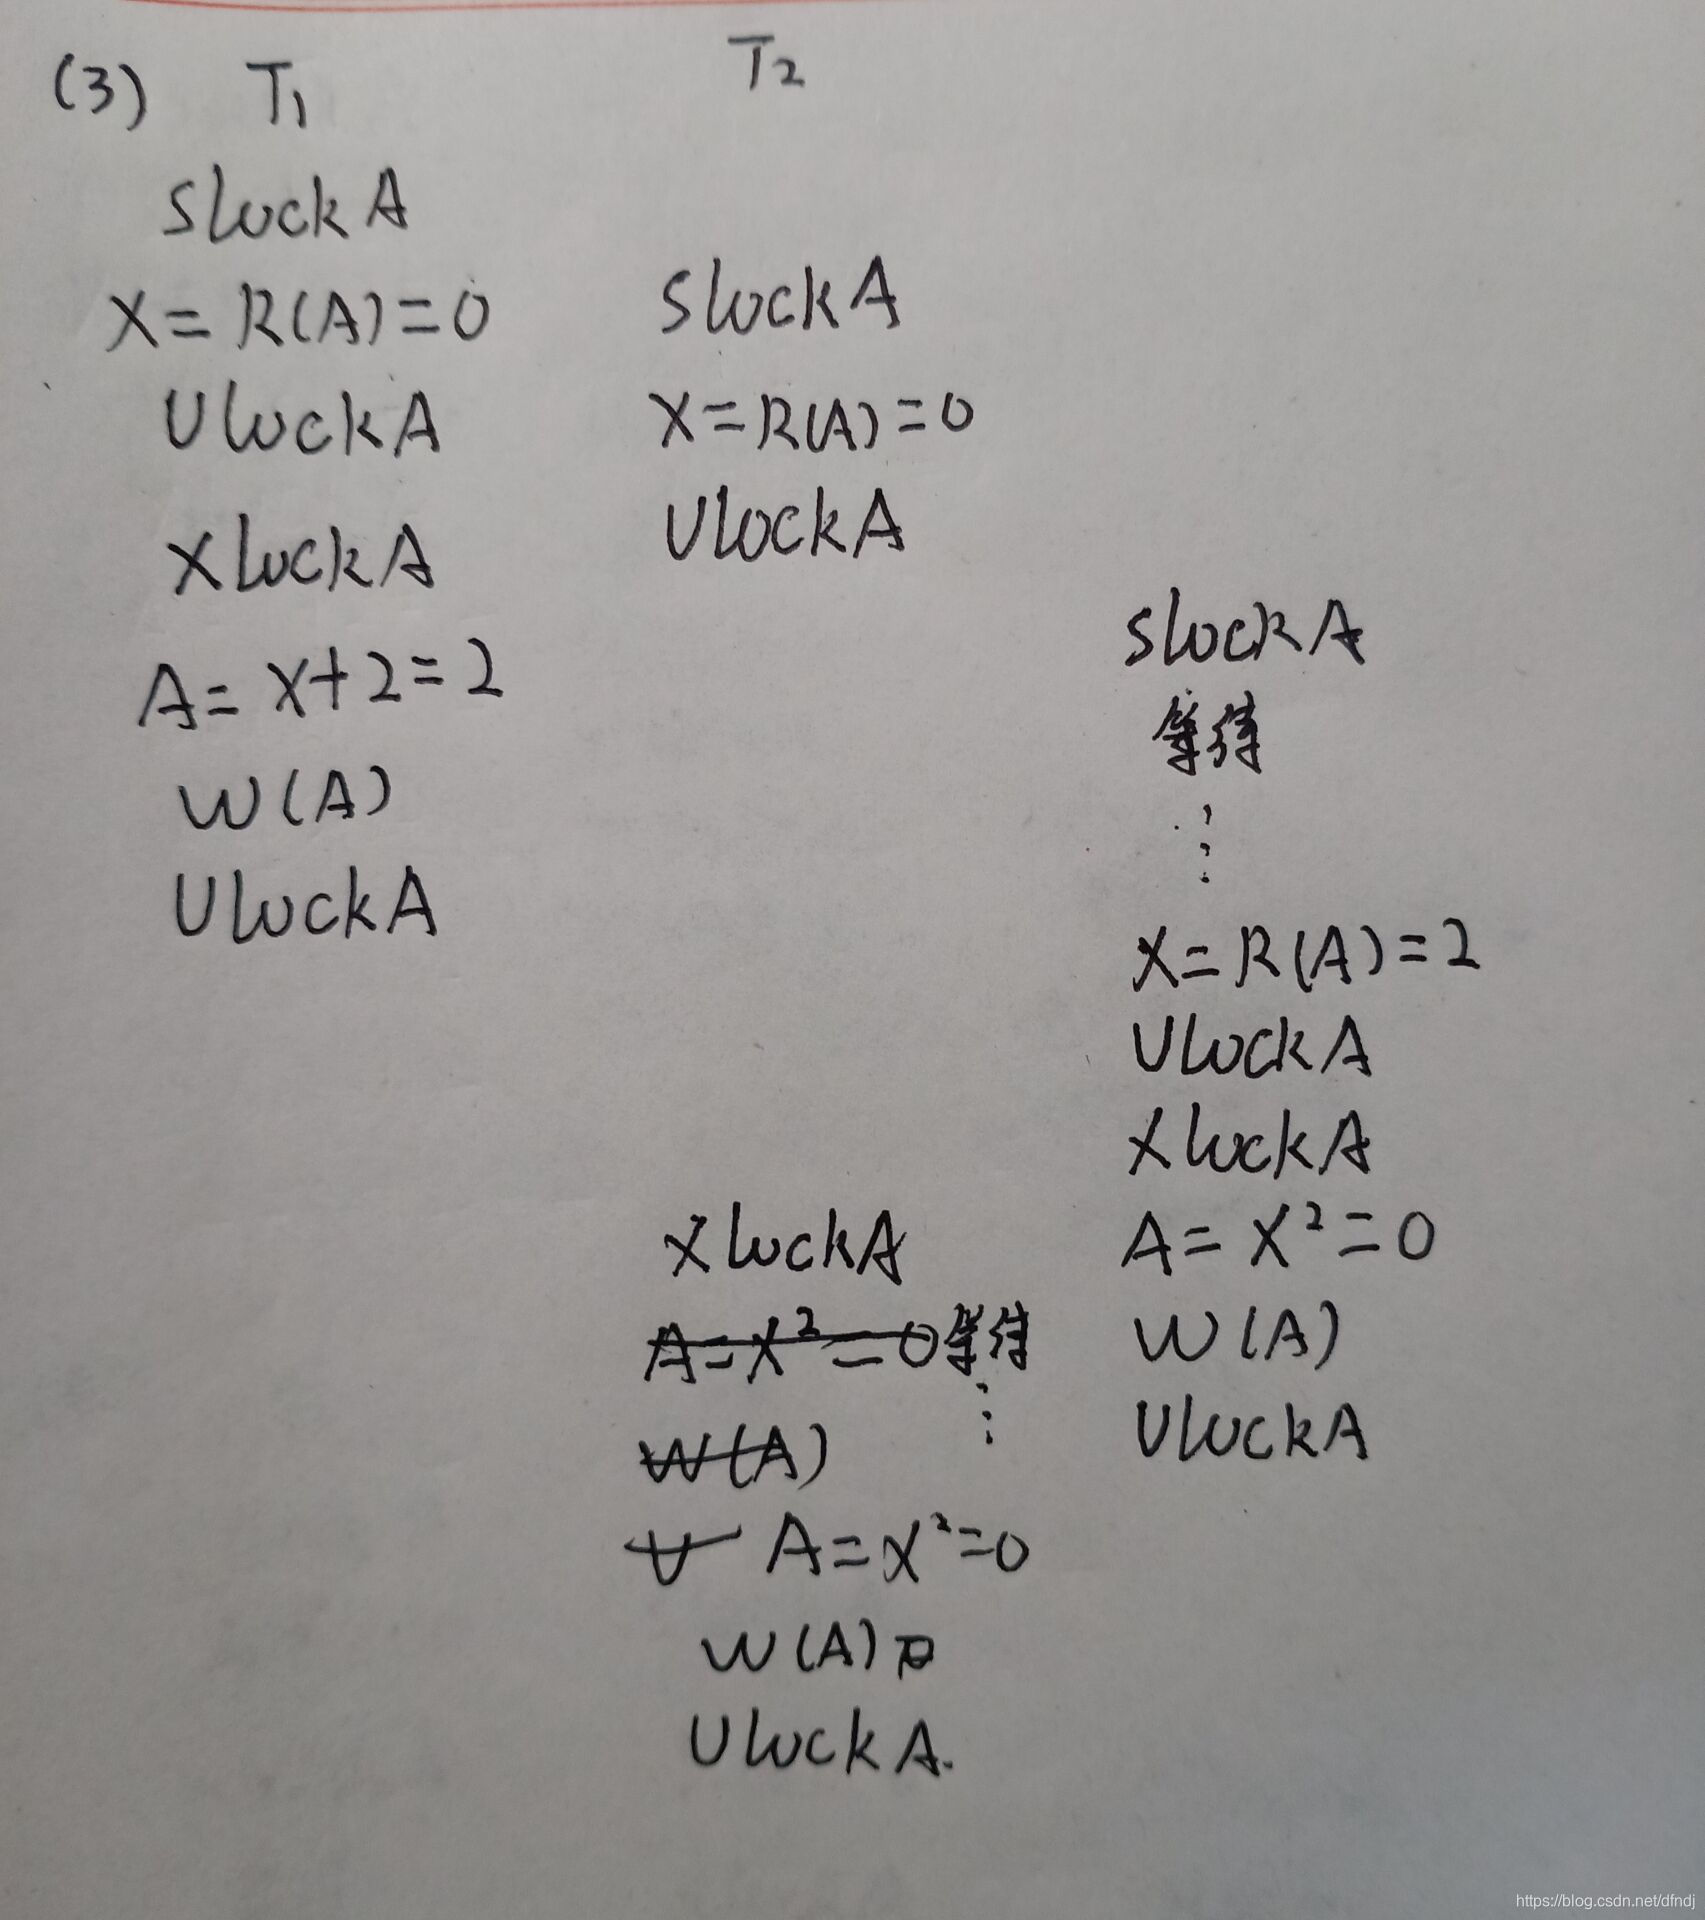 (3) T1 T2
SlockA
X=R(A)=0
UlockA
XlockA
A=X+2=2
W(A)
UlockA
SlockA
X=R(A)=0
UlockA
XlockA
A=X²=0 等待
⋮
W(A)
U A=X²=0
W(A)
UlockA.
SlockA
等待
⋮
X=R(A)=2
UlockA
XlockA
A=X²=0
W(A)
UlockA
https://blog.csdn.net/dfndj